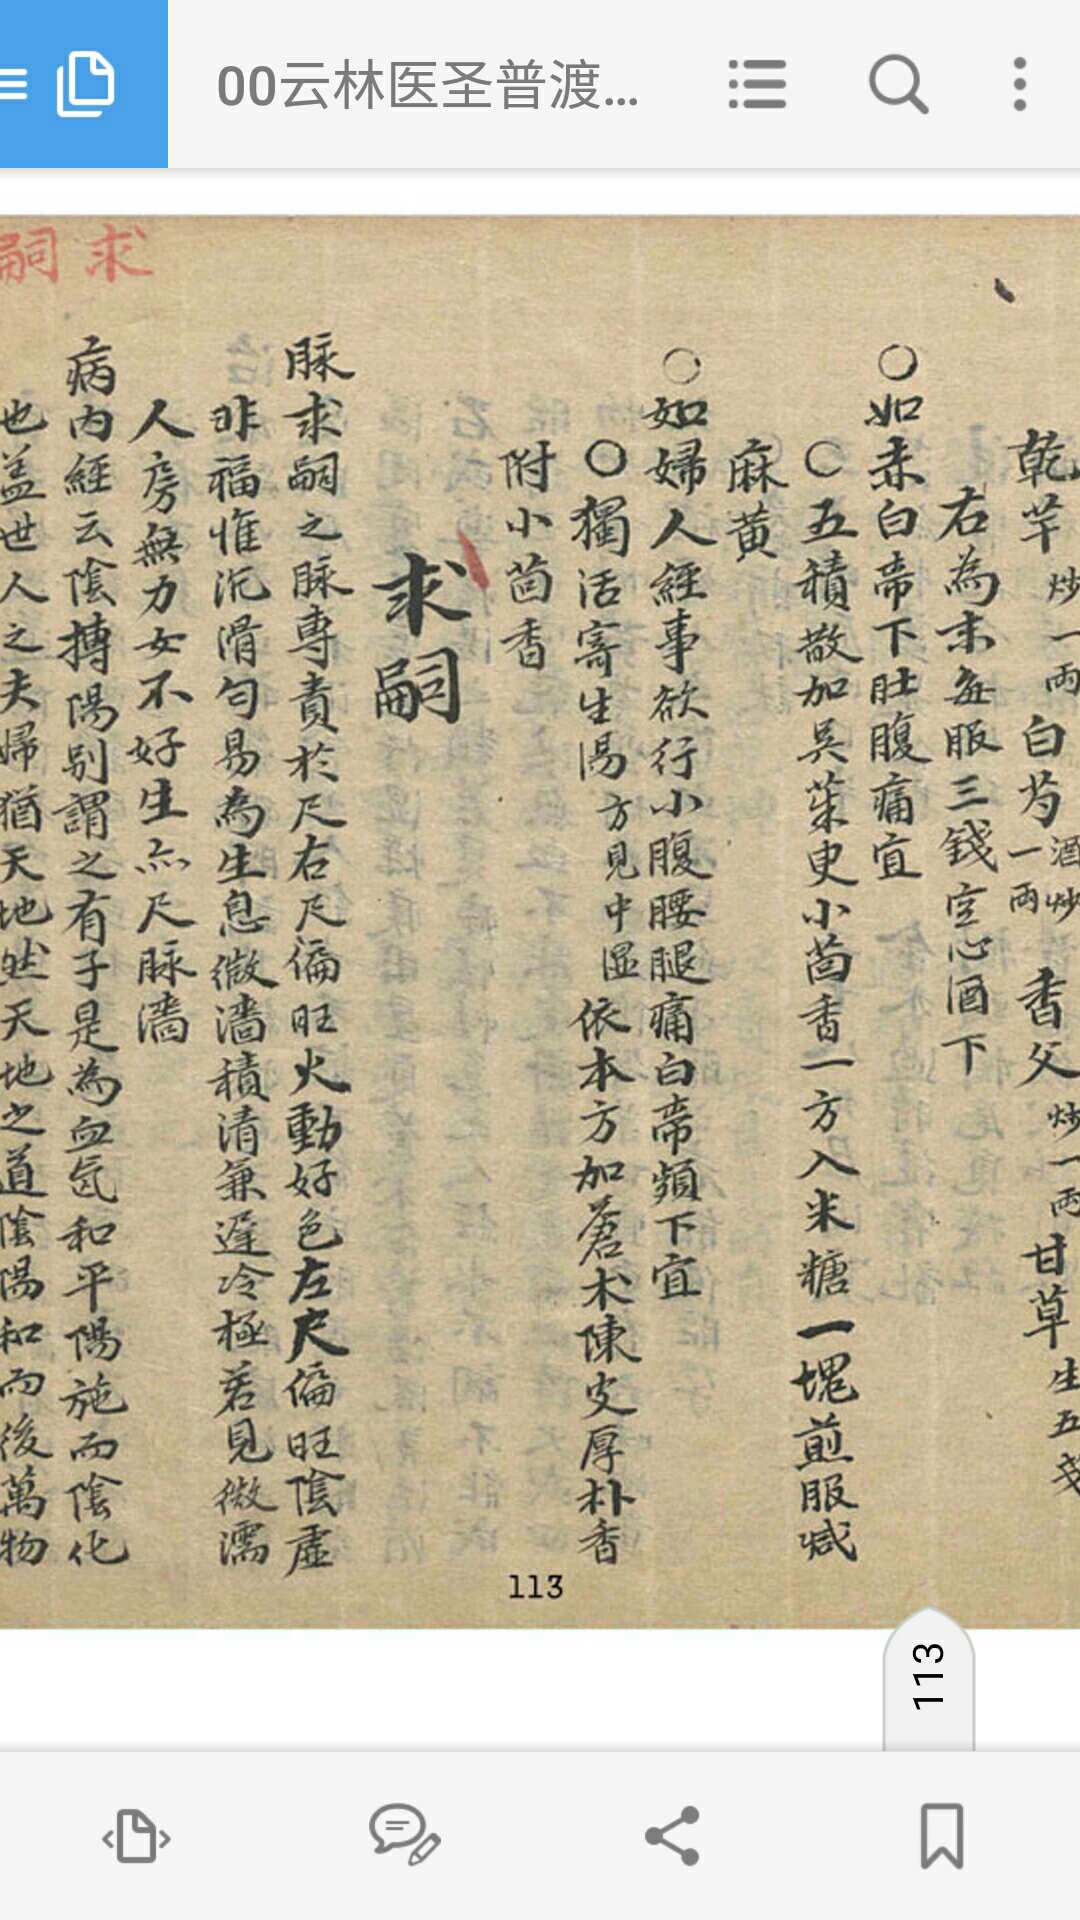 00云林医圣普渡...
求嗣
乾芊炒一两 白芍酒炒一两 香父炒一两 甘草生五戋
右為末每服三錢空心酒下
○如赤白帝下肚腹痛宜
○五積散加吳茱萸小茴香一方入米糖一塊煎服减
麻黄
○如婦人經事欲行小腹腰腿痛白帝頻下宜
○獨活寄生湯方見中湿依本方加蒼术陳皮厚朴香
附小茴香
求嗣
脉求嗣之脉專責於尺右尺偏旺火動好色左尺偏旺陰虛
非福惟沉滑匀易為生息微濇積清兼遲冷極若見微濡
人房無力女不好生亦尺脉濇
病内經云陰搏陽别謂之有子是為血氣和平陽施而陰化
也盖世人之夫婦猶天地然天地之道陰陽和而後萬物
113
113